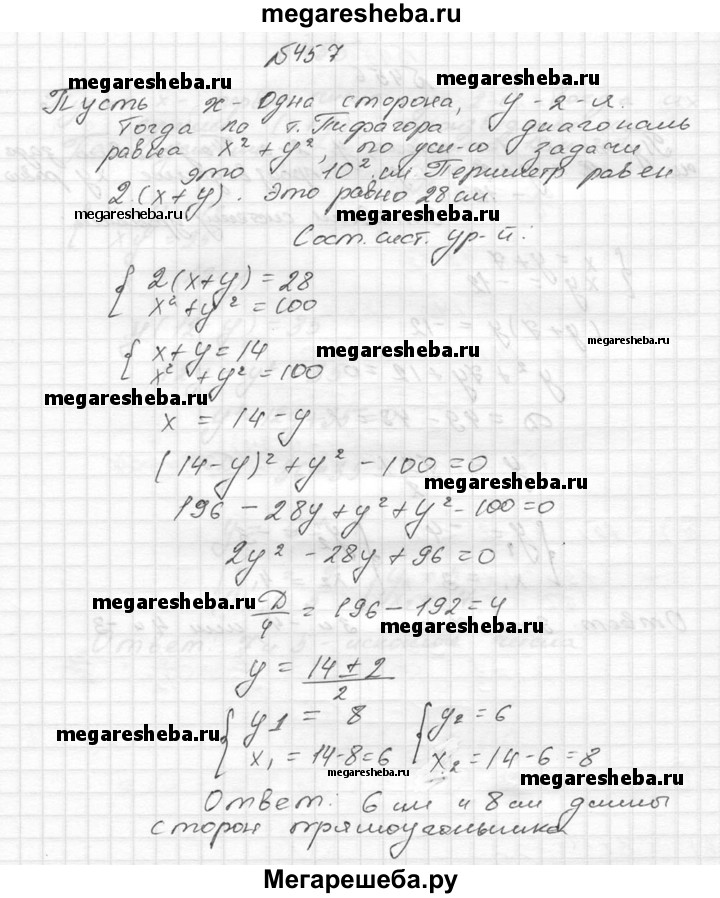 megaresheba.ru
№457
megaresheba.ru megaresheba.ru
Пусть x - одна сторона, y - 2-я.
Тогда по т. Пифагора диагональ
равна x² + y², по усл-ю задачи
это 10² см. Периметр равен
2·(x+y). Это равно 28 см.
megaresheba.ru megaresheba.ru
Сост. сист. ур-й:
{ 2(x+y) = 28
x² + y² = 100
megaresheba.ru
{ x + y = 14
megaresheba.ru
x² + y² = 100
megaresheba.ru
x = 14 - y
(14-y)² + y² - 100 = 0
megaresheba.ru
196 - 28y + y² + y² - 100 = 0
2y² - 28y + 96 = 0
megaresheba.ru
D/4 = 196 - 192 = 4
megaresheba.ru
y = 14 ± 2 / 2
{ y1 = 8 { y₂ = 6
megaresheba.ru
x₁ = 14-8=6 x₂ = 14-6=8
megaresheba.ru megaresheba.ru
Ответ: 6 см и 8 см длины
сторон прямоугольника
Мегарешеба.ру